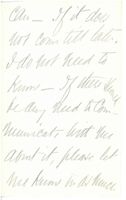 If it does
not come till later
I do not need to
know — If there should
be any need to com
municate with me
about it, please let
me know in advance